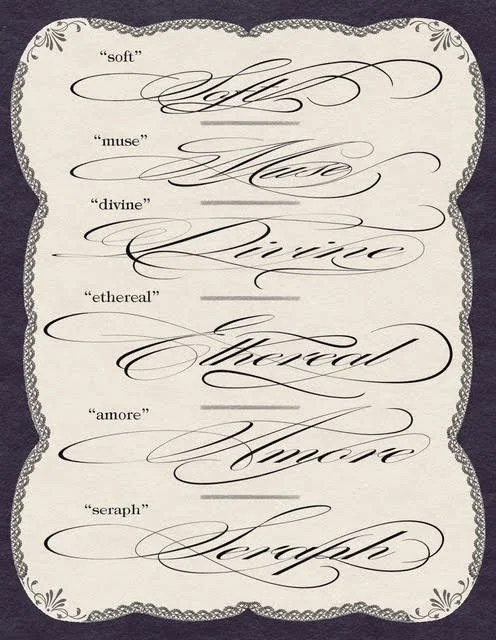 “soft”
Soft
“muse”
Muse
“divine”
Divine
“ethereal”
Ethereal
“amore”
Amore
“seraph”
Seraph